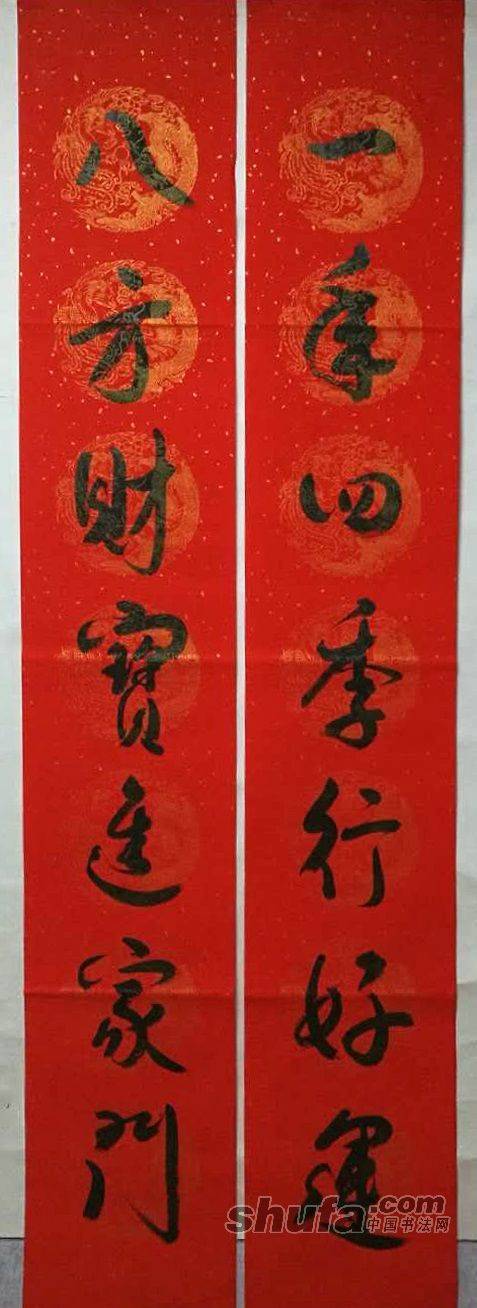 一年四季行好運
八方財寶進家門
shufa.com
中国书法网